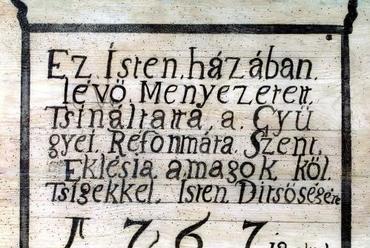 Ez Isten házában
lévö Menyezetett
Tsináltatta a Gyü
gyei Reformata Szent
Eklésia a magok köl
tsigekkel Isten Ditsöségére
1767